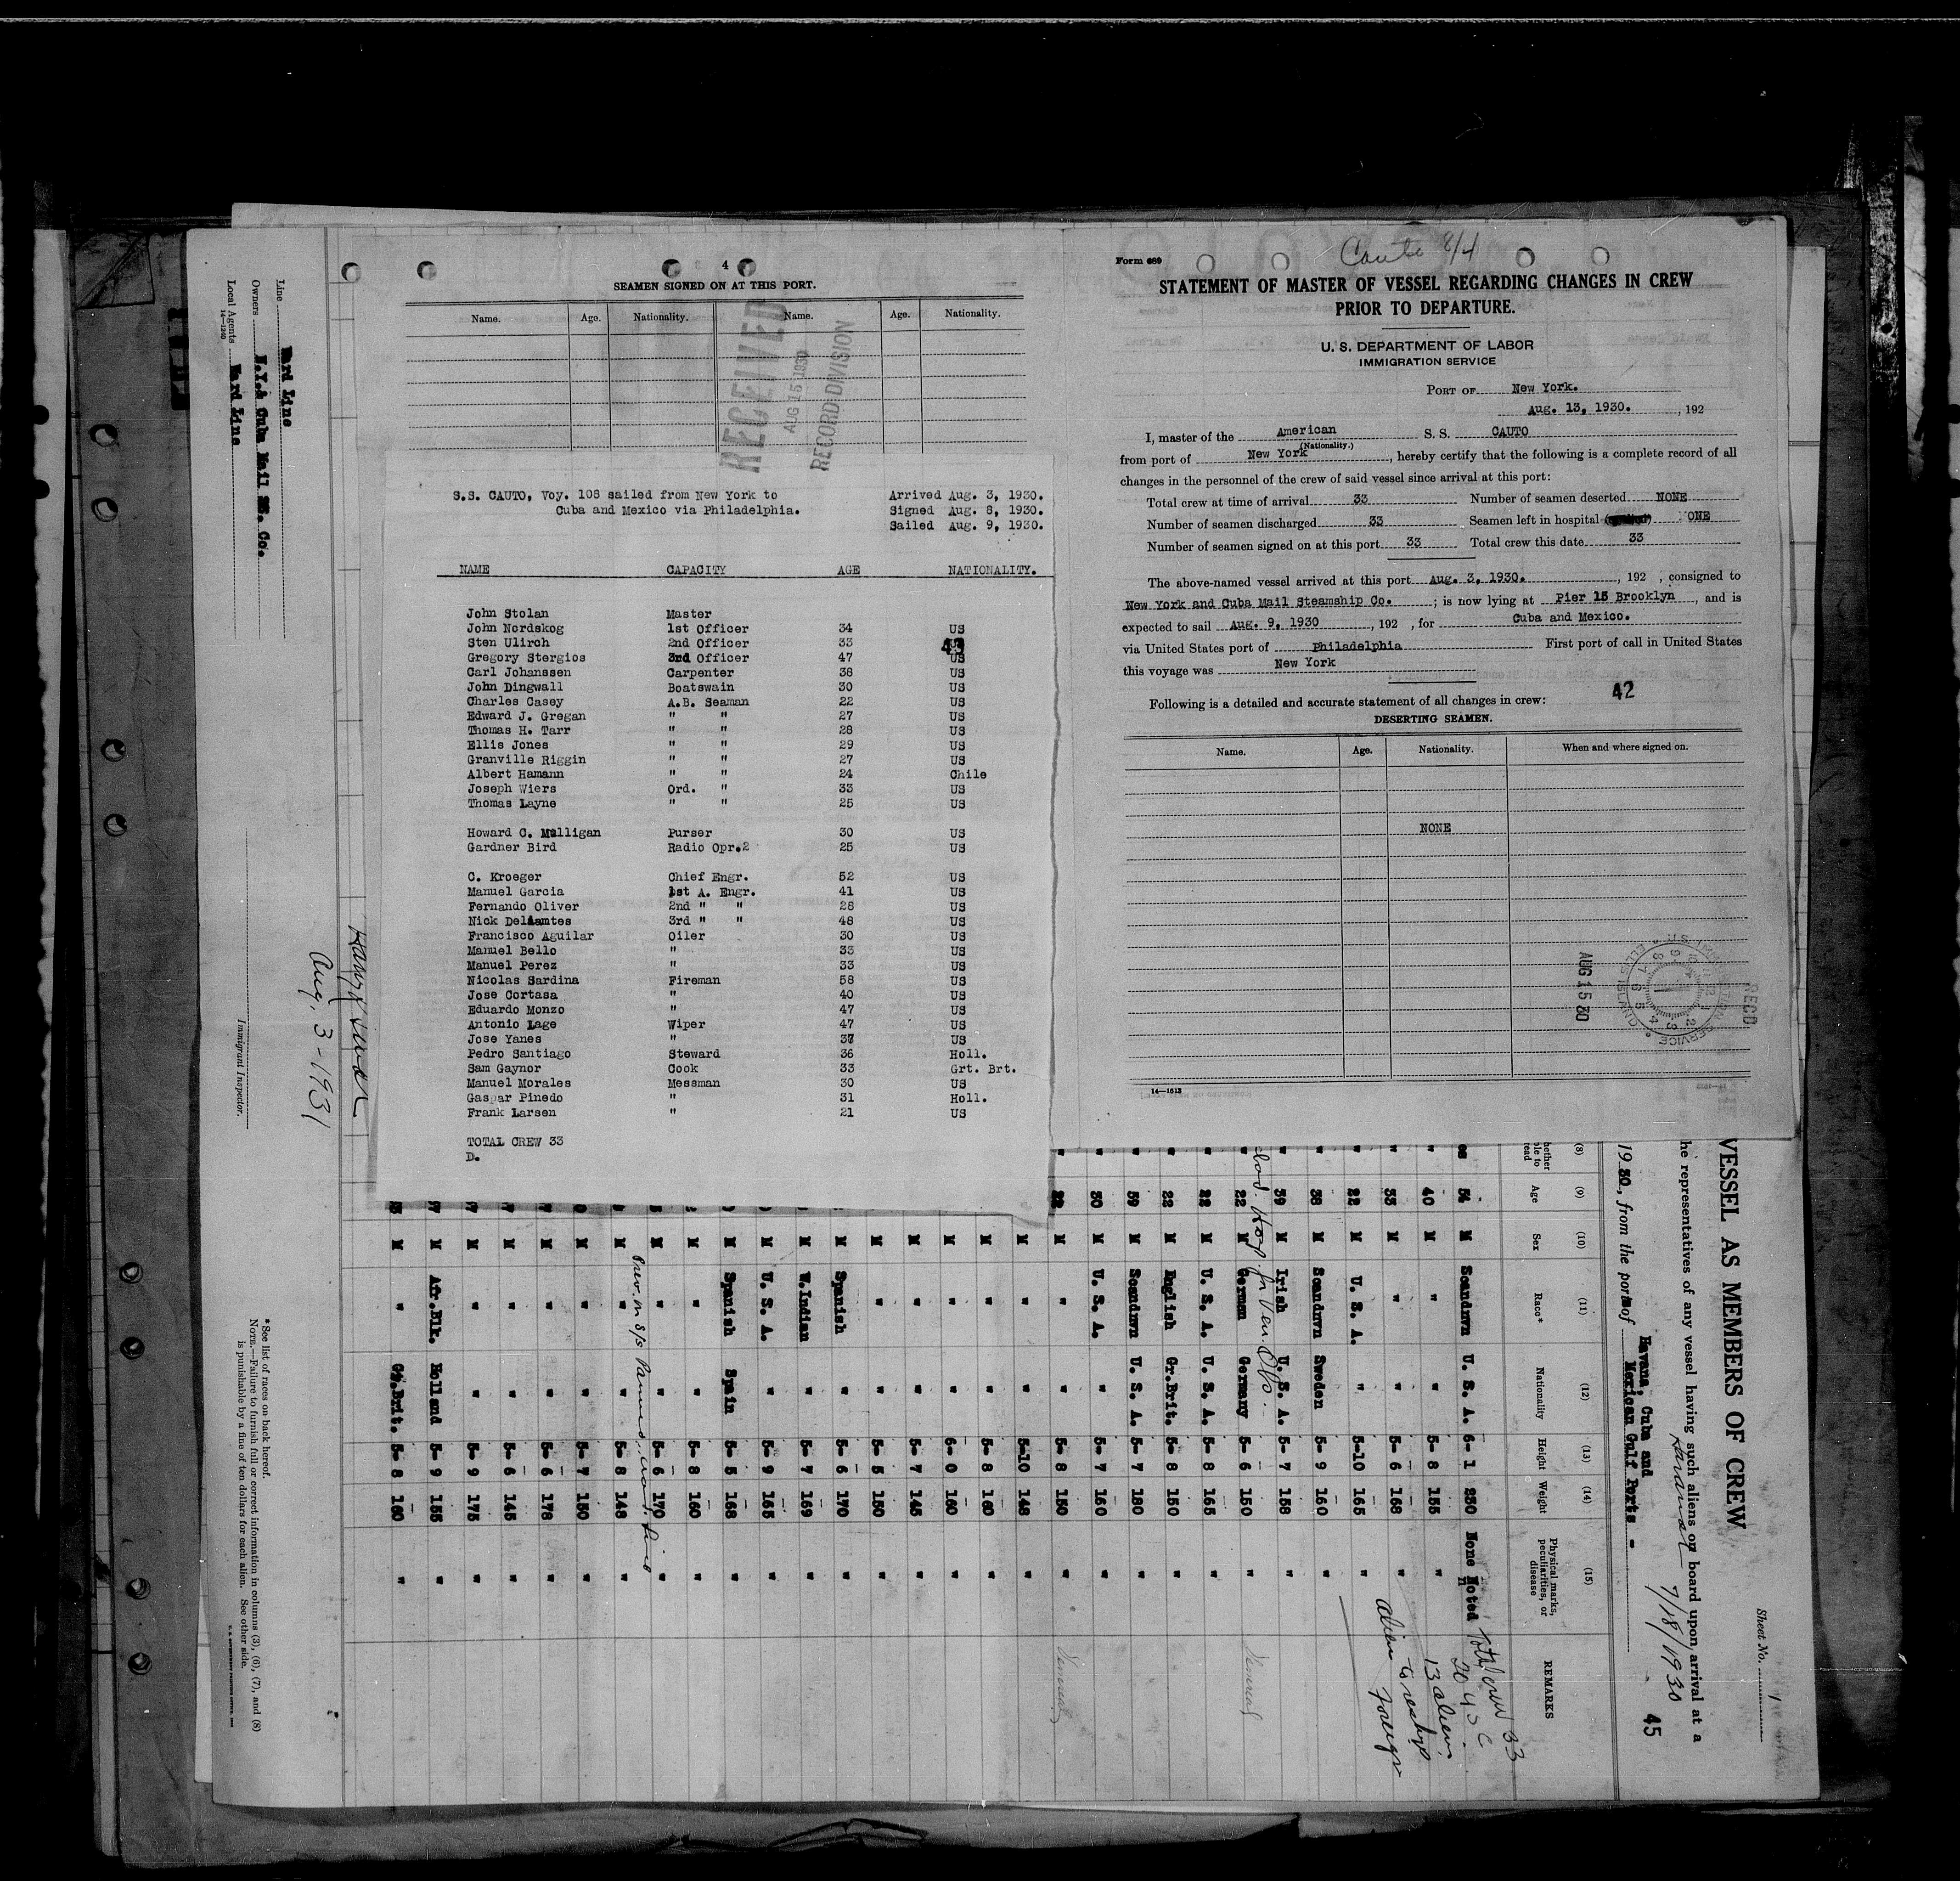 4
SEAMEN SIGNED ON AT THIS PORT.
Name. Age. Nationality. Name. Age. Nationality.
RECEIVED
AUG 15 1930
RECORD DIVISION
S.S. CAUTO, Voy. 108 sailed from New York to Arrived Aug. 3, 1930.
Cuba and Mexico via Philadelphia. Signed Aug. 8, 1930.
Sailed Aug. 9, 1930.
NAME CAPACITY AGE NATIONALITY.
John Stolan Master
John Nordskog 1st Officer 34 US
Sten Ulirch 2nd Officer 33
43
Gregory Stergios 3rd Officer 47 US
Carl Johanssen Carpenter 38 US
John Dingwall Boatswain 30 US
Charles Casey A.B. Seaman 22 US
Edward J. Gregan " " 27 US
Thomas H. Tarr " " 28 US
Ellis Jones " " 29 US
Granville Riggin " " 27 US
Albert Hamann " " 24 Chile
Joseph Wiers Ord. " 33 US
Thomas Layne " " 25 US
Howard C. Mulligan Purser 30 US
Gardner Bird Radio Opr.2 25 US
C. Kroeger Chief Engr. 52 US
Manuel Garcia 1st A. Engr. 41 US
Fernando Oliver 2nd " " 28 US
Nick Deliamtes 3rd " " 48 US
Francisco Aguilar Oiler 30 US
Manuel Bello " 33 US
Manuel Perez " 33 US
Nicolas Sardina Fireman 58 US
Jose Cortasa " 40 US
Eduardo Monzo " 47 US
Antonio Lage Wiper 47 US
Jose Yanes " 37 US
Pedro Santiago Steward 36 Holl.
Sam Gaynor Cook 33 Grt. Brt.
Manuel Morales Messman 30 US
Gaspar Pinedo " 31 Holl.
Frank Larsen " 21 US
TOTAL CREW 33
D.
Form 689
Cauto 8/4
STATEMENT OF MASTER OF VESSEL REGARDING CHANGES IN CREW
PRIOR TO DEPARTURE.
U. S. DEPARTMENT OF LABOR
IMMIGRATION SERVICE
PORT OF New York.
Aug. 13, 1930. , 192
I, master of the American S. S. CAUTO
(Nationality.)
from port of New York , hereby certify that the following is a complete record of all
changes in the personnel of the crew of said vessel since arrival at this port:
Total crew at time of arrival 33 Number of seamen deserted NONE
Number of seamen discharged 33 Seamen left in hospital ONE
Number of seamen signed on at this port 33 Total crew this date 33
The above-named vessel arrived at this port Aug. 3, 1930. , 192 , consigned to
New York and Cuba Mail Steamship Co. ; is now lying at Pier 15 Brooklyn , and is
expected to sail Aug. 9, 1930 , 192 , for Cuba and Mexico.
via United States port of Philadelphia First port of call in United States
this voyage was New York
42
Following is a detailed and accurate statement of all changes in crew:
DESERTING SEAMEN.
Name. Age. Nationality. When and where signed on.
NONE
AUG 15 30
RECD
14—1613
Line Ward Line
Owners N.Y.& Cuba Mail SS. Co.
Local Agents Ward Line
14—1240
Aug, 3-1931
Immigrant Inspector.
*See list of races on back hereof.
NOTE.—Failure to furnish full or correct information in columns (3), (6), (7), and (8)
is punishable by a fine of ten dollars for each alien. See other side.
Sheet No. 1
VESSEL AS MEMBERS OF CREW
he representatives of any vessel having such aliens on board upon arrival at a
Havana 7/18/1930
19 30, from the ports of Havana, Cuba and
Mexican Gulf Ports -
45
(8) (9) (10) (11) (12) (13) (14) (15)
Age Sex Race* Nationality Height Weight Physical marks, peculiarities, or disease REMARKS
54 M Scandnvn U. S. A. 6- 1 230 None Noted
40 M " " 5- 8 155 "
33 M " " 5- 6 168 "
22 M U. S. A. " 5-10 165 "
38 M Scandnvn Sweden 5- 9 160 "
39 M Irish U. S. A. 5- 7 158 "
22 M German Germany 5- 6 150 "
22 M U. S. A. U. S. A. 5- 8 165 "
22 M English Gr.Brit. 5- 8 150 "
59 M Scandnvn U. S. A. 5- 7 180 "
30 M U. S. A. " 5- 7 160 "
22 M " " 5- 8 150 "
M " " 5-10 148 "
M " " 5- 8 160 "
M " " 6- 0 160 "
M " " 5- 7 145 "
M " " 5- 5 150 "
M Spanish " 5- 6 170 "
M W.Indian " 5- 7 169 "
M U. S. A. " 5- 9 165 "
M Spanish Spain 5- 5 168 "
M " " 5- 8 160 "
M " " 5- 6 170 "
M " " 5- 8 148 "
M " " 5- 7 150 "
M " " 5- 6 178 "
M " " 5- 6 145 "
M " " 5- 9 175 "
M Afr.Blk. Holland 5- 9 155 "
M " Gt.Brit. 5- 8 160 "
Total crew 33
20 U S C
13 aliens
to reship
foreign